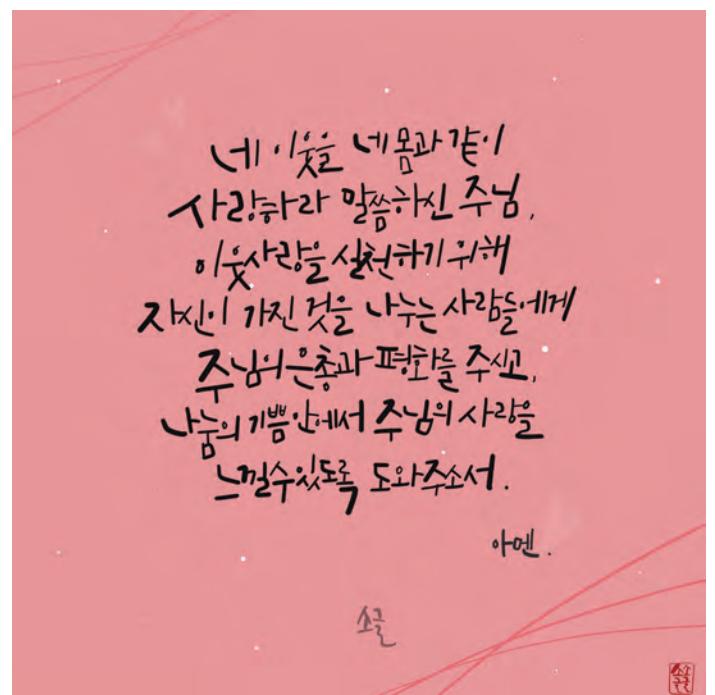 네 이웃을 네 몸과 같이
사랑하라 말씀하신 주님,
이웃사랑을 실천하기 위해
자신이 가진 것을 나누는 사람들에게
주님의 은총과 평화를 주시고,
나눔의 기쁨 안에서 주님의 사랑을
느낄 수 있도록 도와주소서.
아멘.
소글